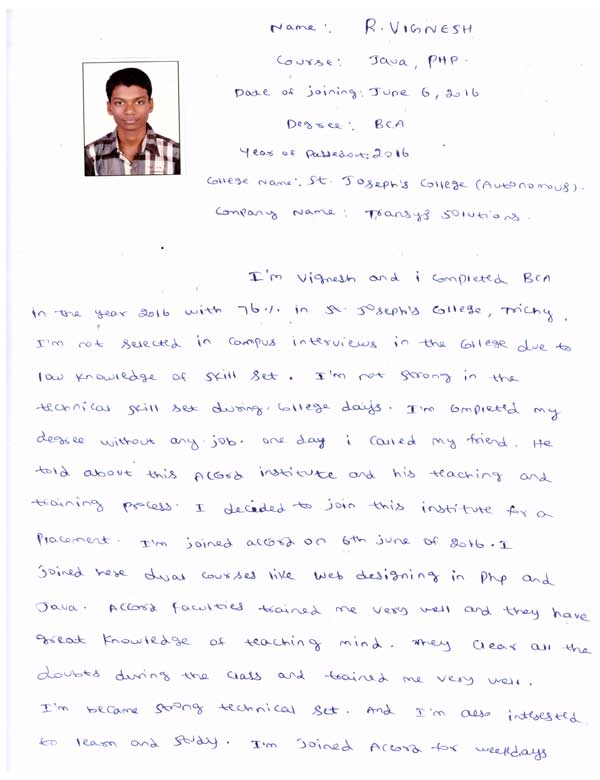 Name: R. VIGNESH
Course: Java, PHP.
Date of joining: June 6, 2016
Degree: BCA
Year of Passedout: 2016
College Name: St. Joseph's College (Autonomous).
Company Name: Transys Solutions.
I'm Vignesh and i completed BCA
in the year 2016 with 76% in St. Joseph's College, Trichy.
I'm not selected in Campus interviews in the College due to
low knowledge of skill set. I'm not strong in the
technical skill set during college days. I'm completed my
degree without any job. one day i called my friend. He
told about this Accord institute and his teaching and
training process. I decided to join this institute for a
Placement. I'm joined accord on 6th june of 2016. I
joined here dual courses like web designing in Php and
Java. Accord faculties trained me very well and they have
great knowledge of teaching mind. They clear all the
doubts during the class and trained me very well.
I'm became strong technical set. And I'm also interested
to learn and study. I'm joined Accord for weekdays